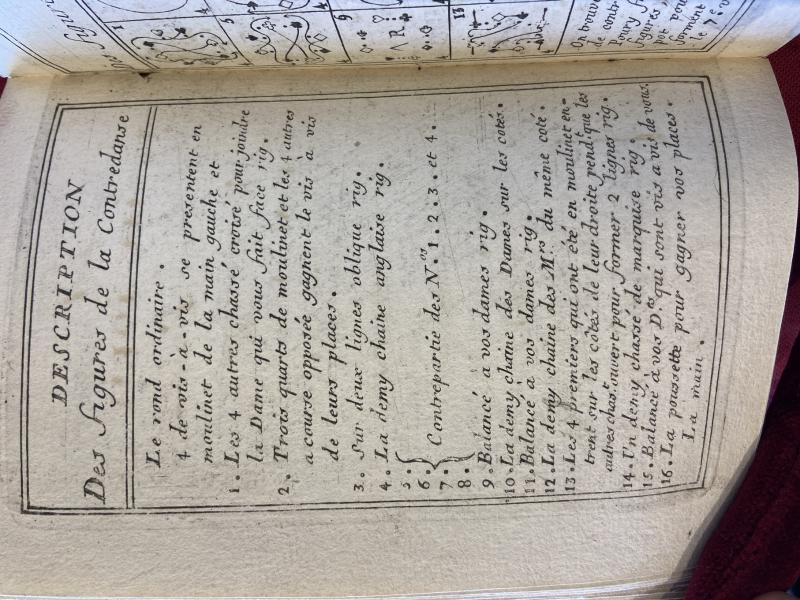 DESCRIPTION
Des figures de la Contredanse
Le rond ordinaire.
4 de vis-à-vis se presentent en
moulinet de la main gauche et
1. Les 4 autres chassé croisé pour joindre
la Dame qui vous fait face rig.
2. Trois quarts de moulinet et les 4 autres
a course opposée gagnent le vis à vis
de leurs places.
3. Sur deux lignes oblique rig.
4. La demy chaine anglaise rig.
5.
6. Contrepartie des N.os 1. 2. 3. et 4.
7.
8.
9. Balancé a vos dames rig.
10. La demy chaine des Dames sur les cotés.
11. Balancé a vos dames rig.
12. La demy chaine des M.rs du même coté.
13. Les 4 premiers qui ont été en moulinet en-
trent sur les cotés de leur droite pend.t que les
autres chas.t ouvert pour former 2 lignes rig.
14. Un demy chassé de marquise rig.
15. Balancé à vos D.es qui sont vis a vis de vous
16. La poussette pour gagner vos places.
La main.
On
de contr
Pour
figures
pot pou
forment
le 7.e